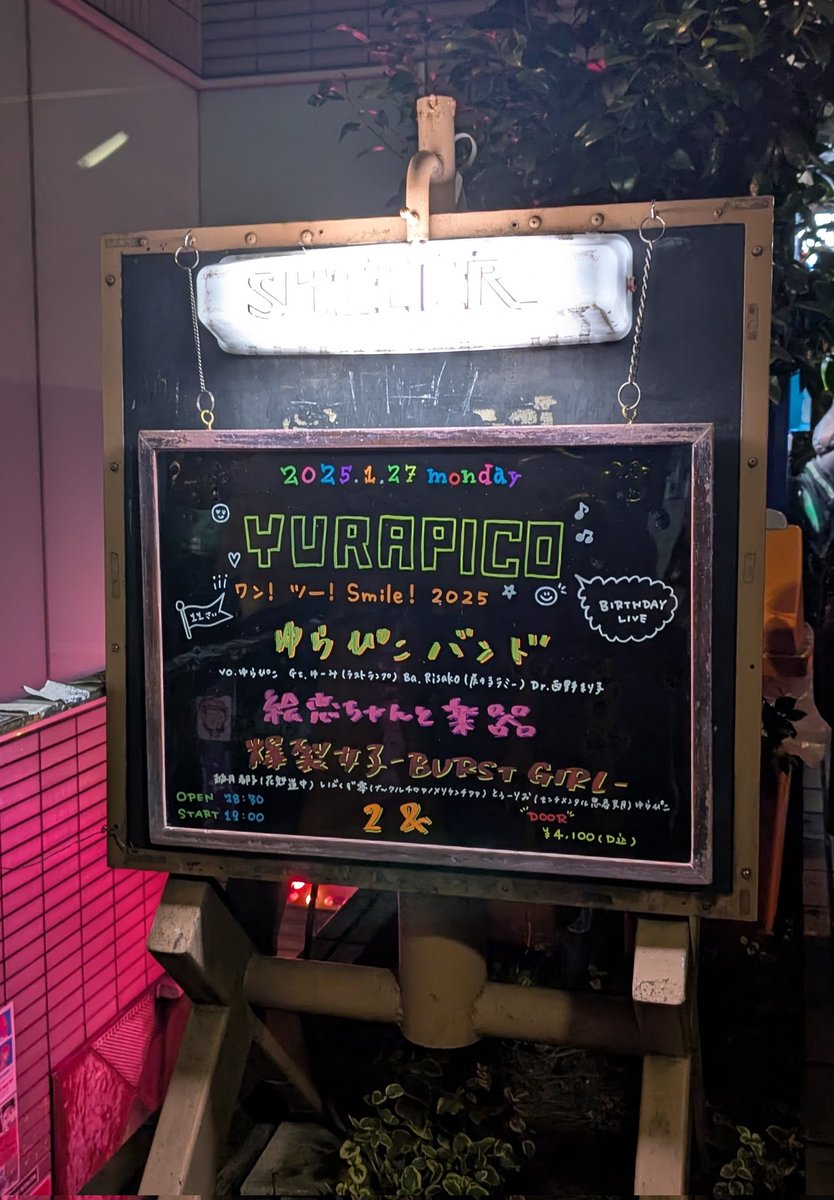 SHELTER
2025.1.27 monday
YURAPICO
ワン! ツー! Smile! 2025
BIRTHDAY
LIVE
ゆらぴこバンド
Vo.ゆらぴこ Gt.ゆーみ(ラストランプ) Ba.Risako Dr.西野まり子
絵恋ちゃんと楽器
爆裂女子-BURST GIRL-
OPEN 18:30
START 19:00
2&
"DOOR"
¥4,100(D込)